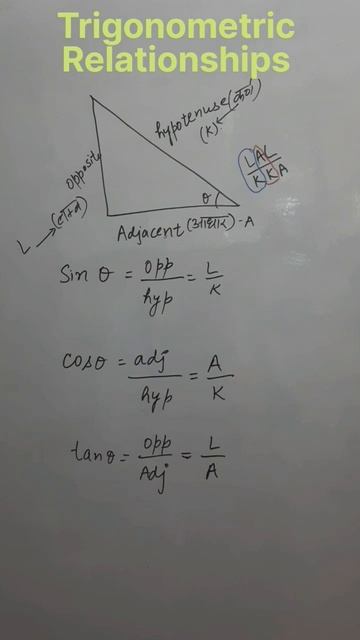 Trigonometric
Relationships
hypotenuse (कर्ण)
(K)
opposite
L → (लम्ब)
θ
LAL
KKA
Adjacent (आधार) - A
Sin θ = opp/hyp = L/K
cosθ = adj/hyp = A/K
tanθ = opp/Adj = L/A